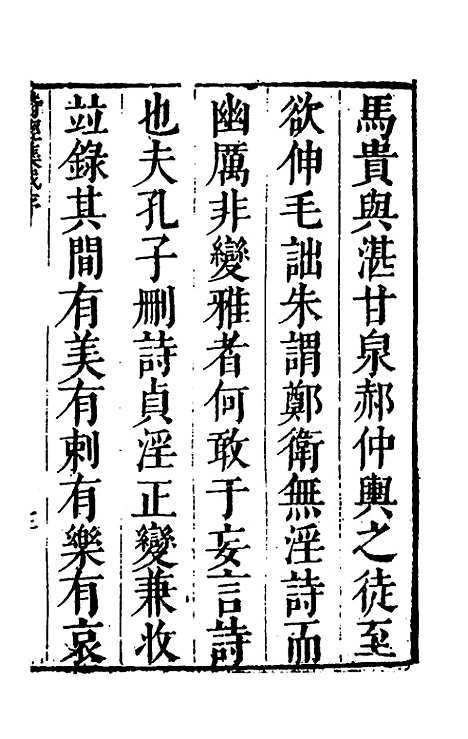 馬貴與湛甘泉郝仲輿之徒至
欲伸毛詘朱謂鄭衛無淫詩而
幽厲非變雅者何敢于妄言詩
也夫孔子刪詩貞淫正變兼收
竝錄其間有美有刺有樂有哀
詩經集成序